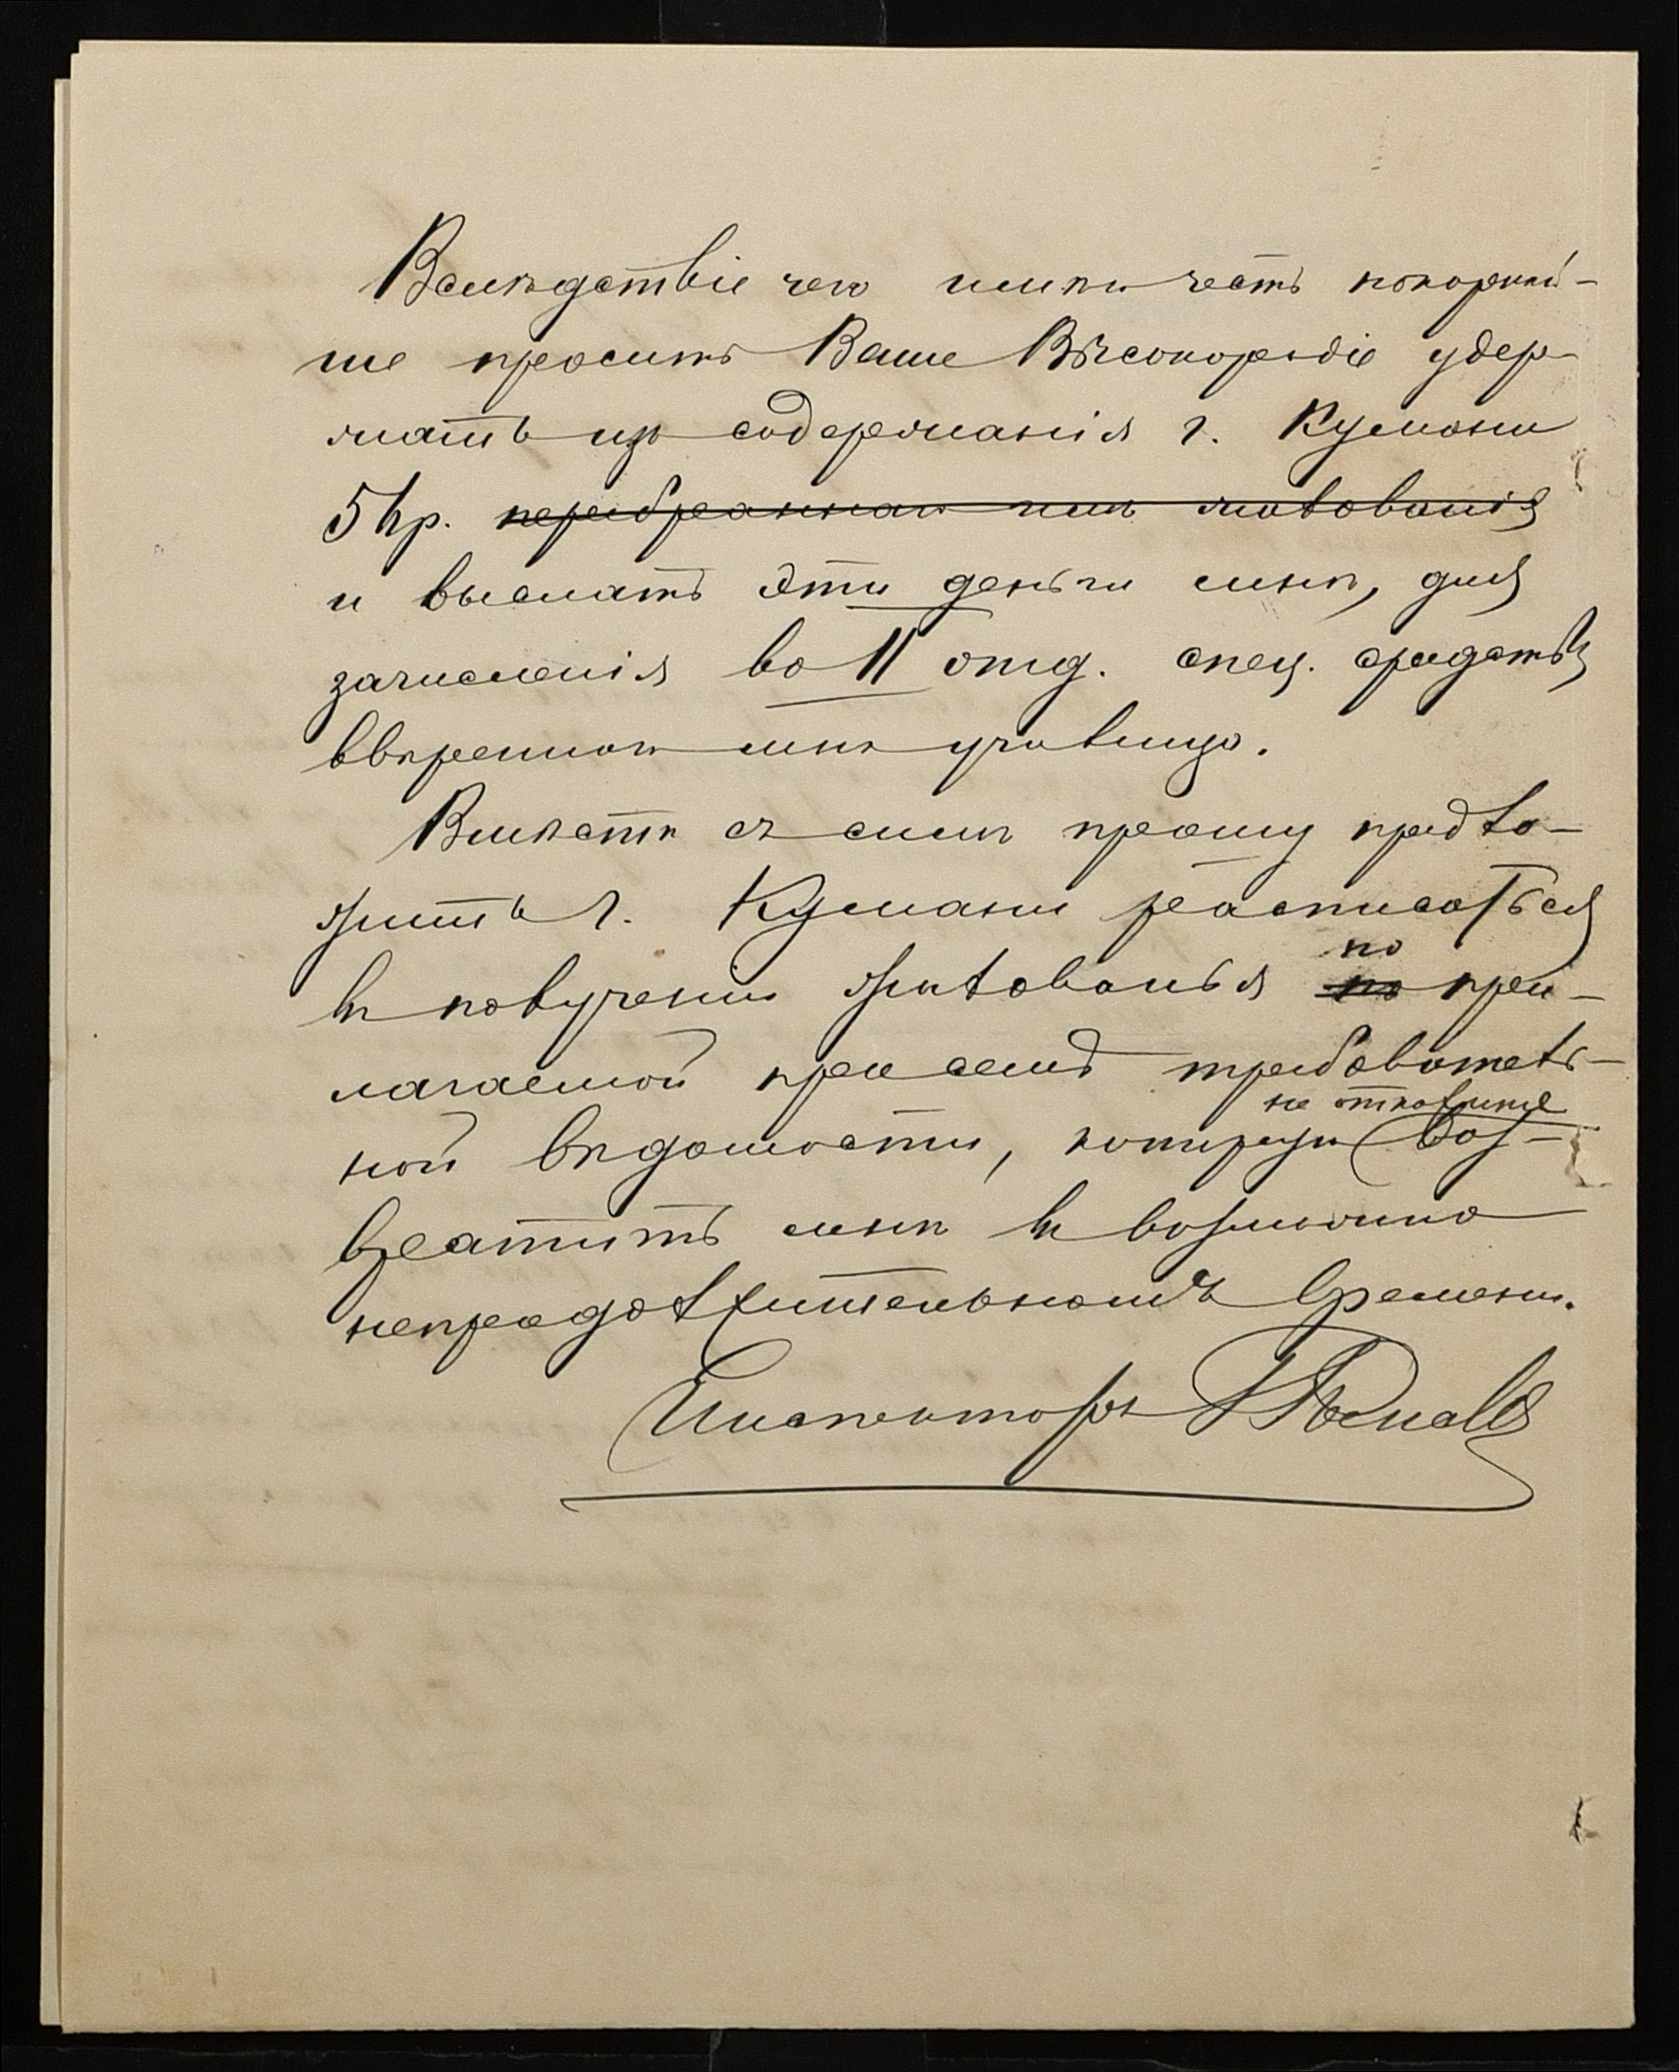 Вслѣдствіе чего имѣю честь покорнѣй-
ше просить Ваше Высокородіе удер-
жать изъ содержанія г. Кумани
5 кр. перебраннаго имъ жалованія
и выслать эти деньги мнѣ, для
зачисленія во II отд. спец. средствъ
ввѣреннаго мнѣ училища.
Вмѣстѣ съ симъ прошу предло-
жить г. Кумани расписаться
въ полученіи жалованья по при-
лагаемой при семъ требователь-
ной вѣдомости, которую не откажите воз-
вратить мнѣ въ возможно
непродолжительномъ времени.
Инспекторъ